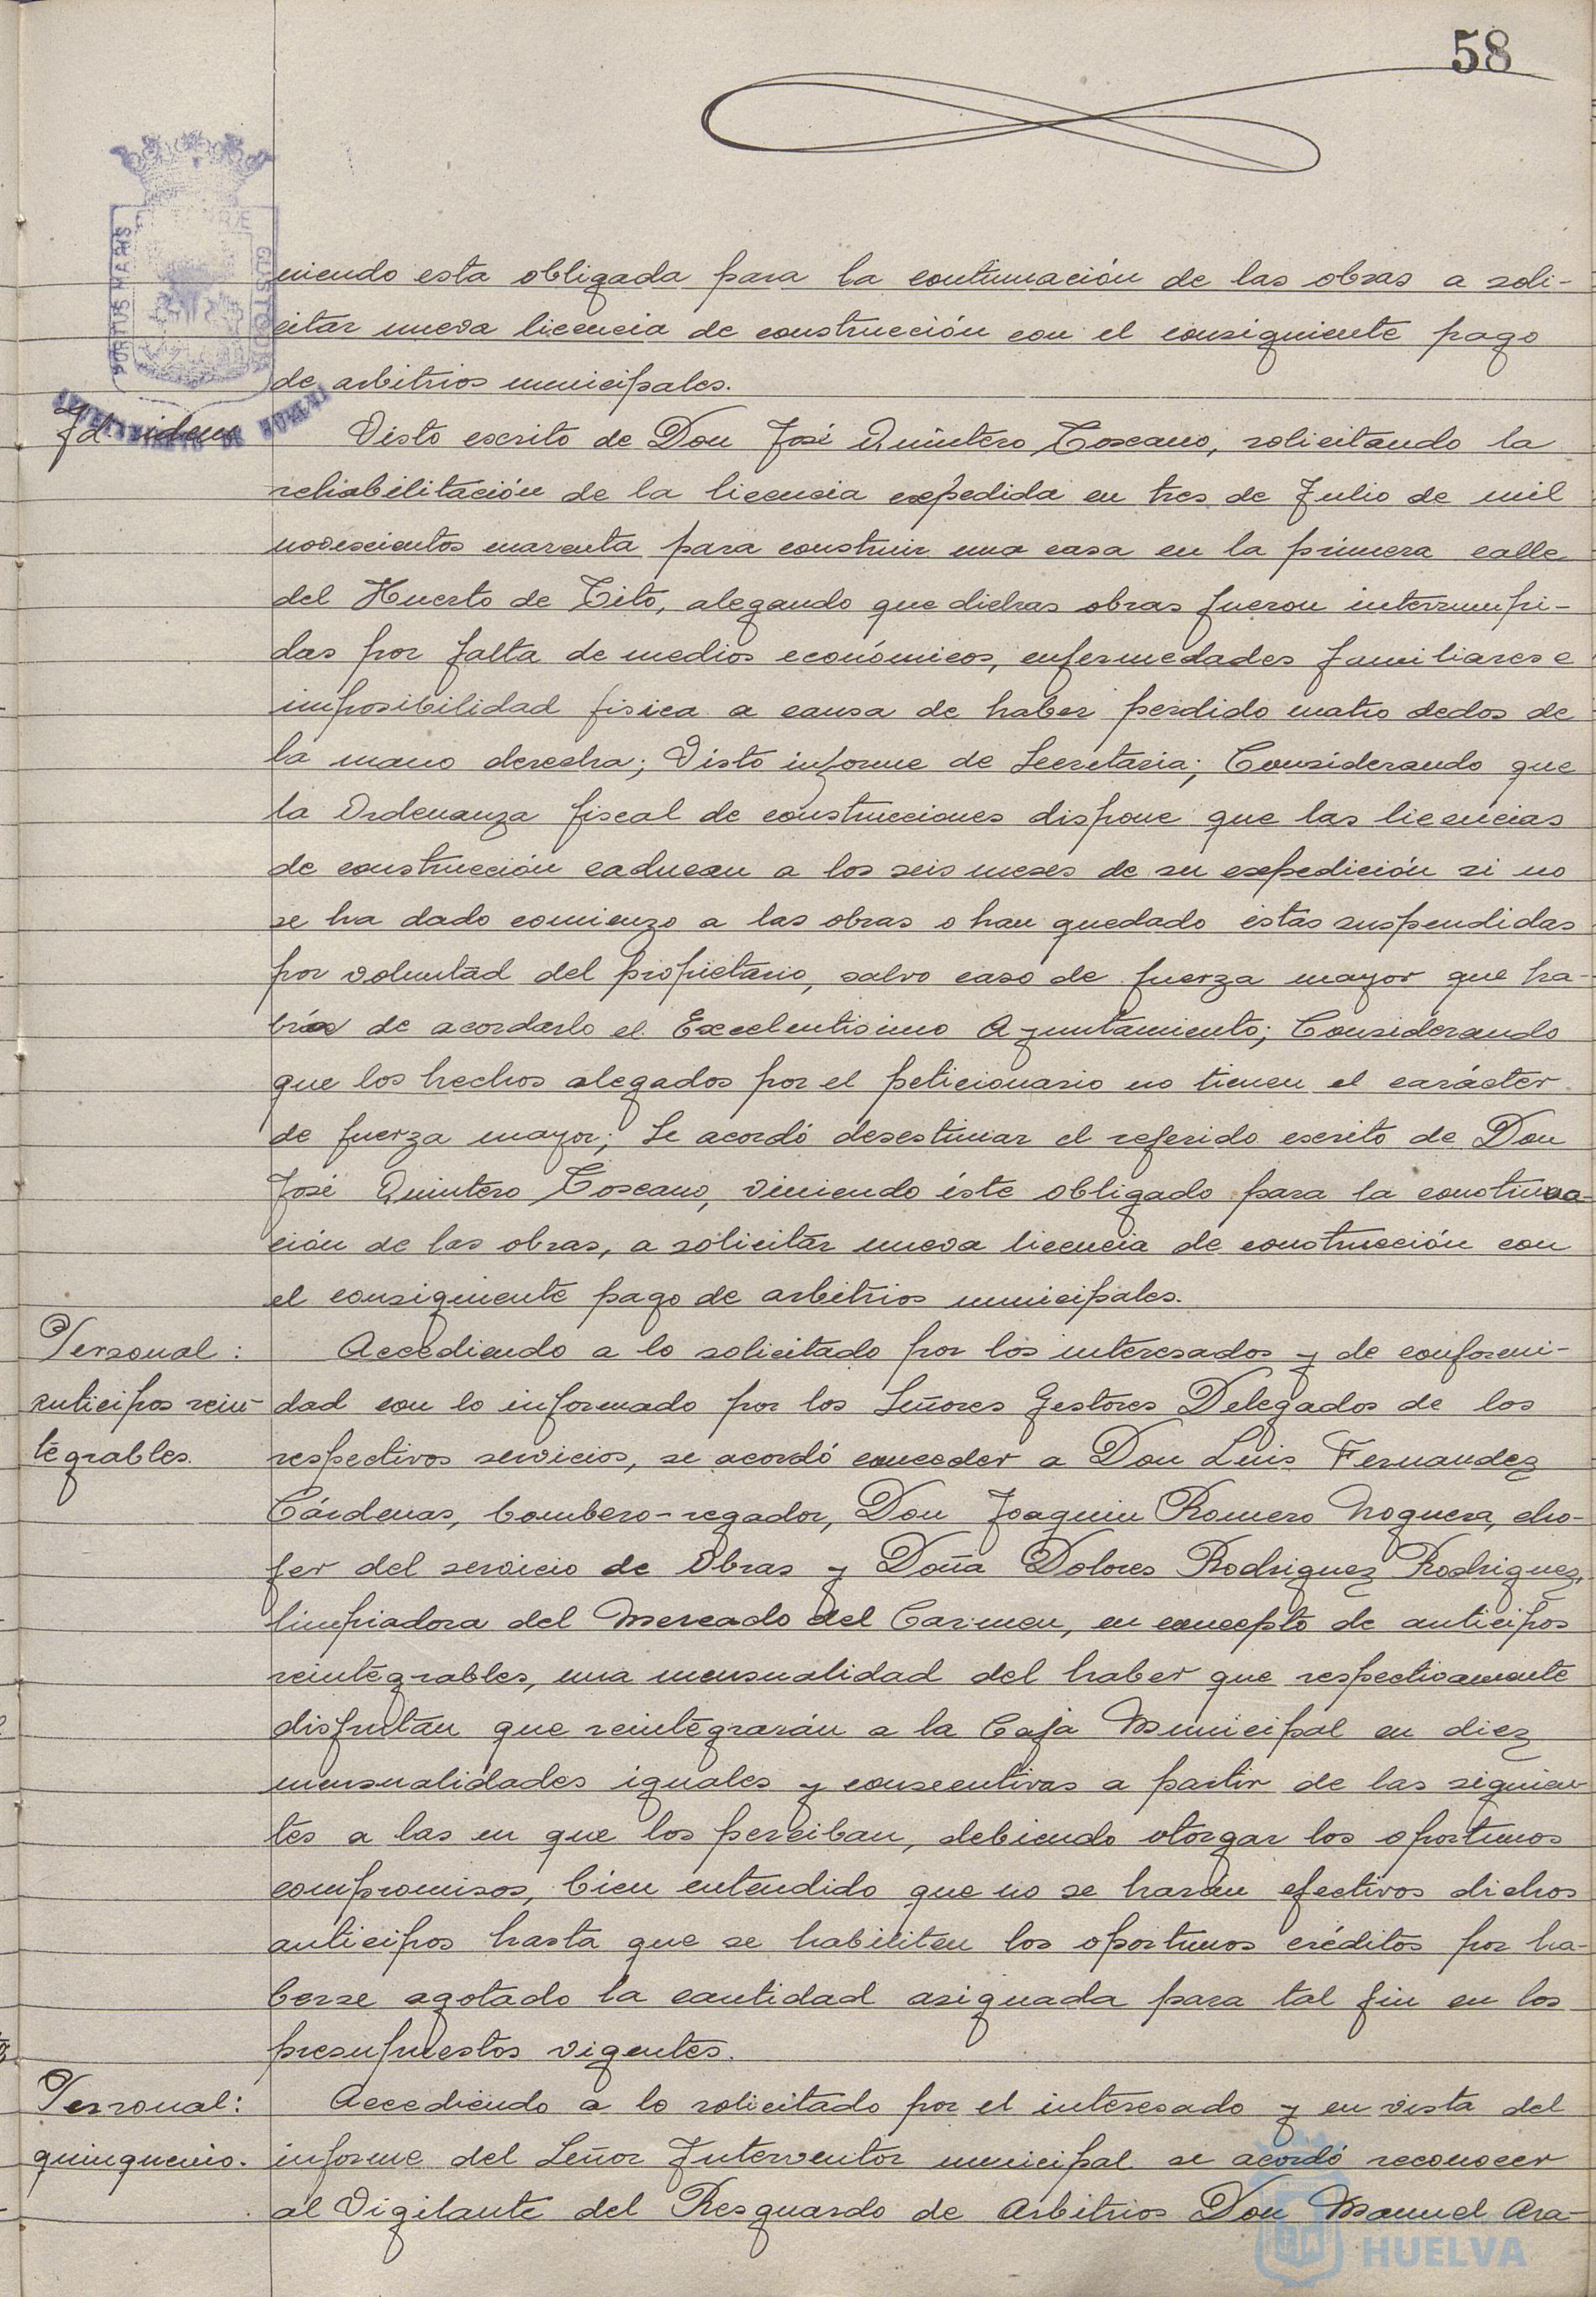 58
niendo esta obligada para la continuación de las obras a soli-
citar nueva licencia de construcción con el consiguiente pago
de arbitrios municipales.
Id. idem
Visto escrito de Don José Quintero Toscano, solicitando la
rehabilitación de la licencia expedida en tres de Julio de mil
novescientos cuarenta para construir una casa en la primera calle
del Huerto de Tito, alegando que dichas obras fueron interrumpi-
das por falta de medios económicos, enfermedades familiares e
imposibilidad fisica a causa de haber perdido cuatro dedos de
la mano derecha; Visto informe de Secretaria; Considerando que
la Ordenanza fiscal de construcciones dispone que las licencias
de construcción caducan a los seis meses de su expedición si no
se ha dado comienzo a las obras o han quedado éstas suspendidas
por voluntad del propietario, salvo caso de fuerza mayor que ha-
brá de acordarlo el Excelentisimo Ayuntamiento; Considerando
que los hechos alegados por el peticionario no tienen el carácter
de fuerza mayor; Se acordó desestimar el referido escrito de Don
José Quintero Toscano, viniendo éste obligado para la
ción de las obras, a solicitar nueva licencia de construcción con
el consiguiente pago de arbitrios municipales.
Personal:
anticipos rein-
tegrables.
Accediendo a lo solicitado por los interesados y de conformi-
dad con lo informado por los Señores Gestores Delegados de los
respectivos servicios, se acordó conceder a Don Luis Fernandez
Cárdenas, bombero-regador, Don Joaquin Romero Noguera, cho-
fer del servicio de Obras y Doña Dolores Rodriguez Rodriguez,
limpiadora del Mercado del Carmen, en concepto de anticipos
reintegrables, una mensualidad del haber que respectivamente
disfrutan que reintegrarán a la Caja Municipal en diez
mensualidades iguales y consecutivas a partir de las siguien-
tes a las en que los perciban, debiendo otorgar los oportunos
compromisos, bien entendido que no se harán efectivos dichos
anticipos hasta que se habiliten los oportunos créditos por ha-
berse agotado la cantidad asignada para tal fin en los
presupuestos vigentes.
Personal:
quinquenio.
Accediendo a lo solicitado por el interesado y en vista del
informe del Señor Interventor municipal se acordó reconocer
al Vigilante del Resguardo de Arbitrios Don Manuel Ara-
PORTUS MARIS
HUELVA